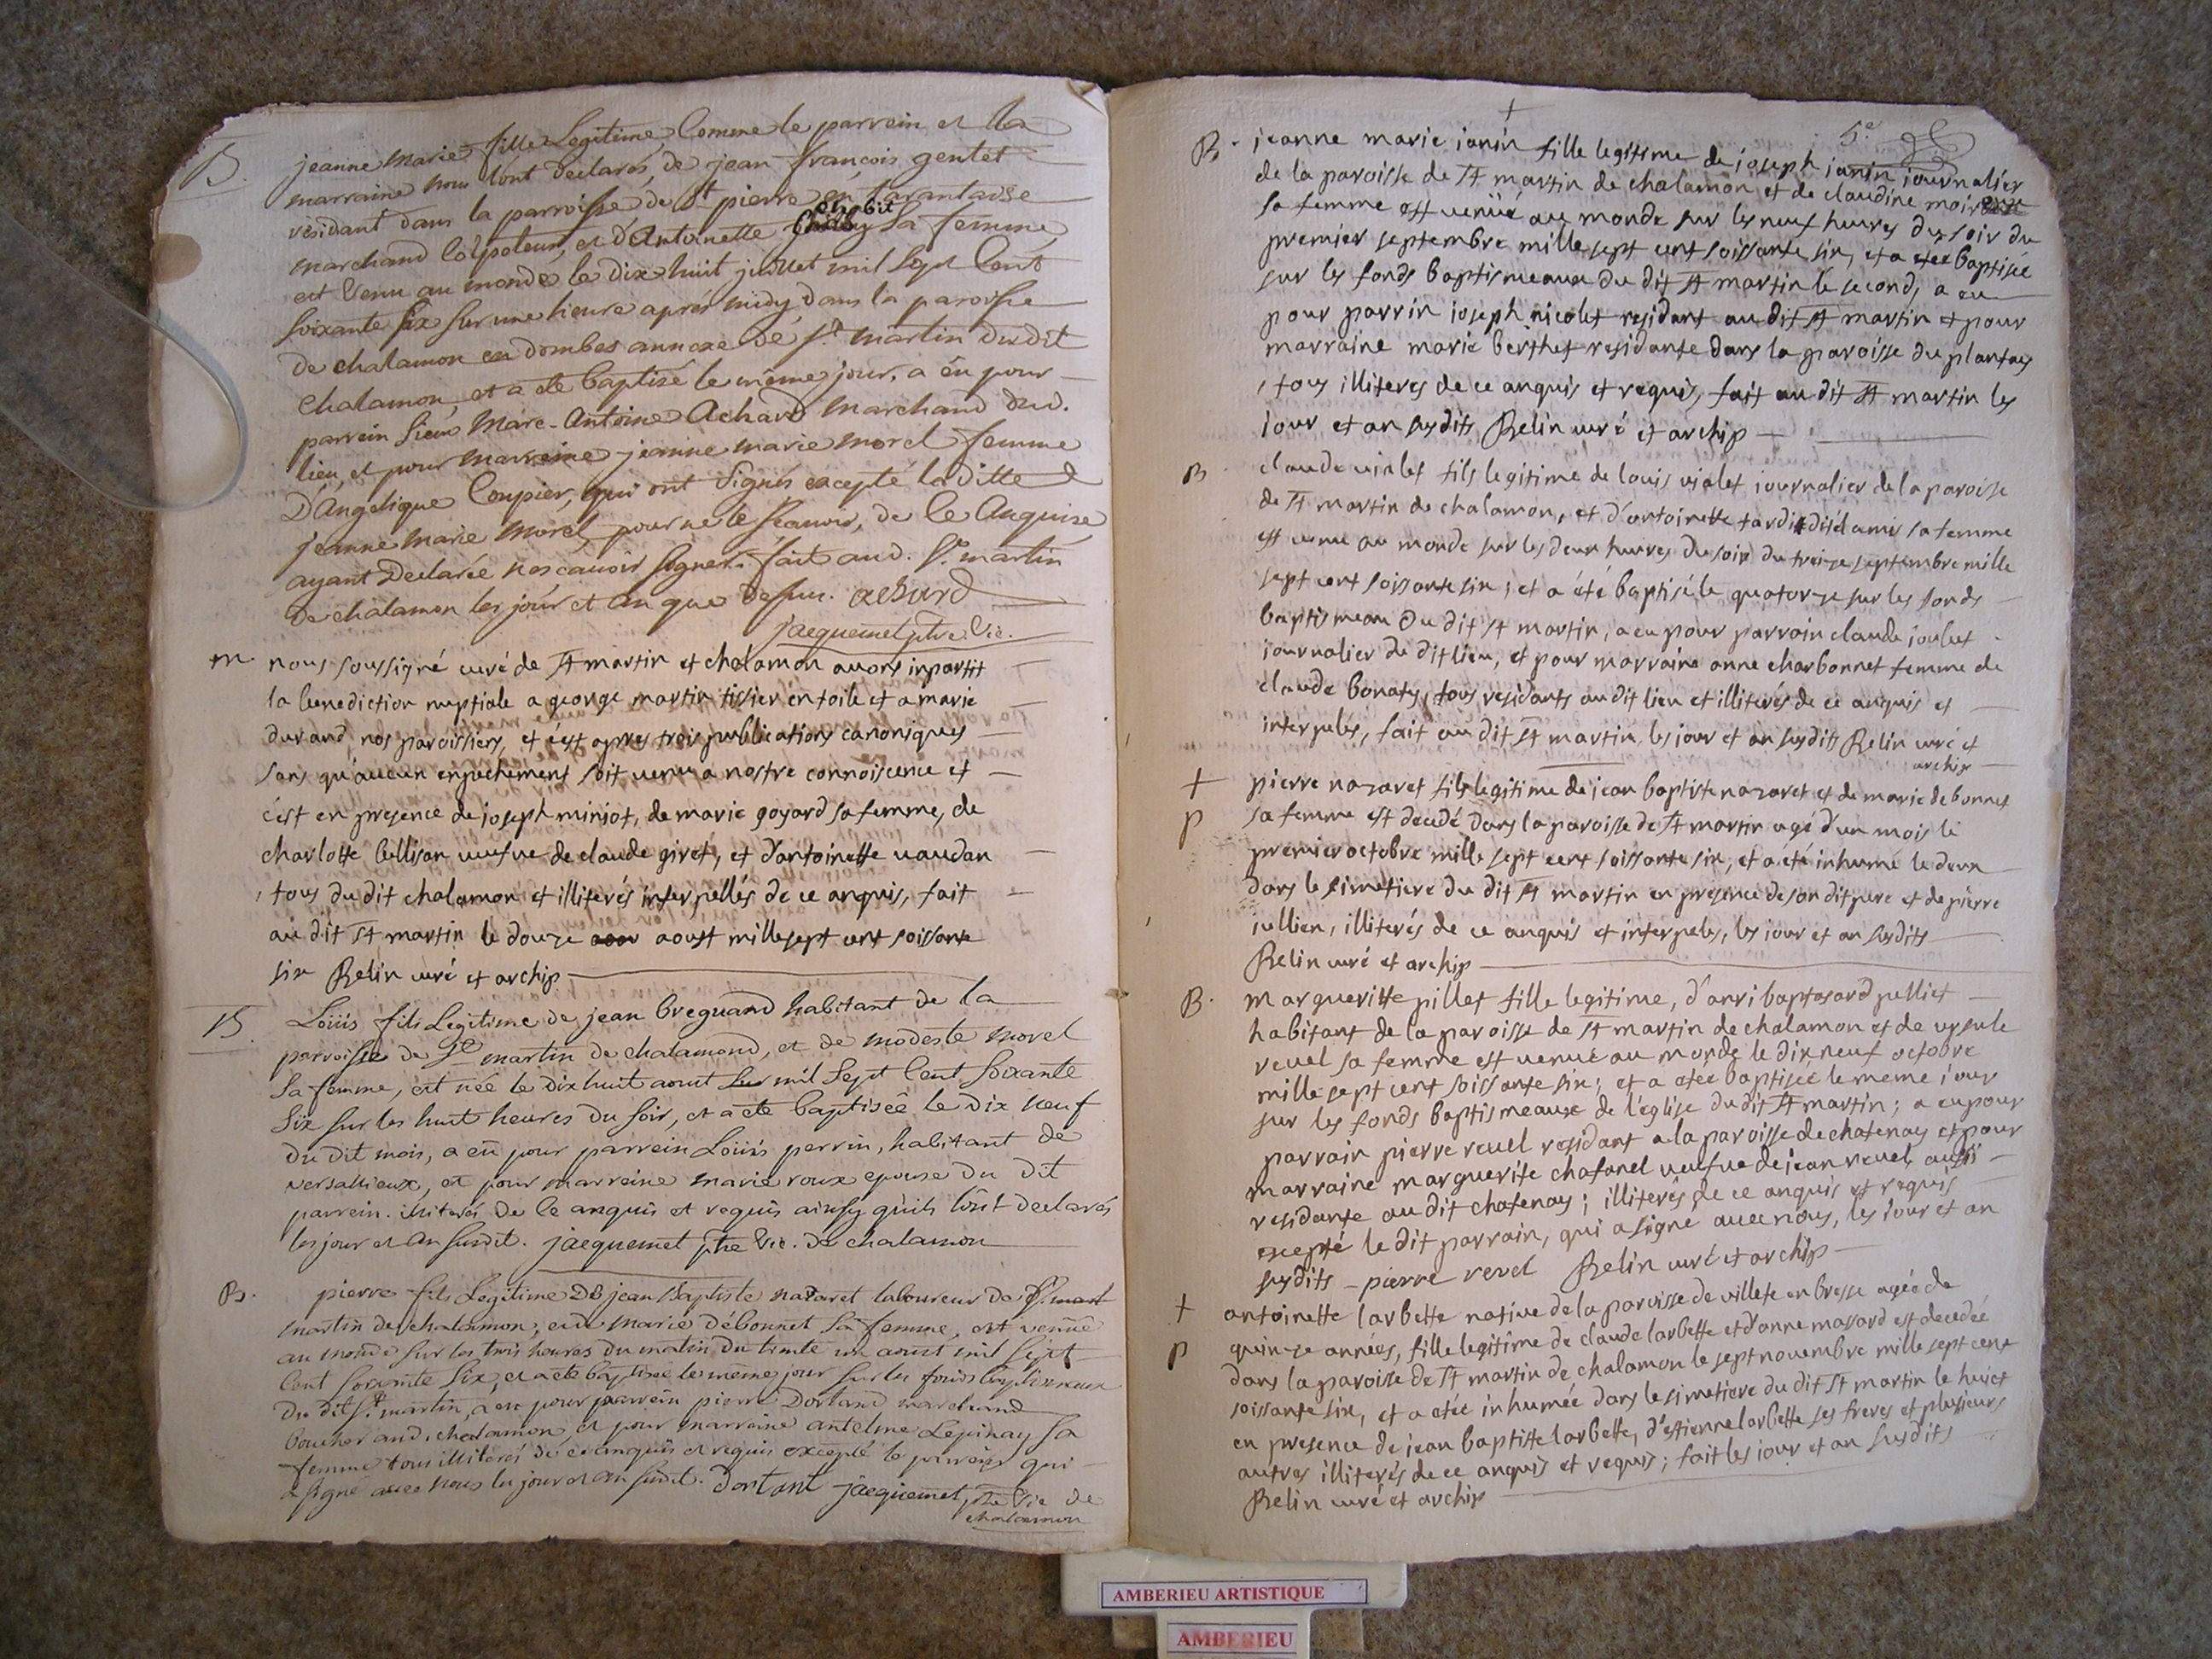 B. jeanne Marie fille Legitime, Comme le parrein et la
marraine nous l'ont declarés, de jean françois gentet
résidant dans la parroisse de St pierre en tarantaise
marchand Colpoteur, et d'Antoinette sa femme
est Venu au monde le dix huit juillet mil Sept Cent
soixante Six sur une heure aprés midy, dans la paroisse
de chalamon en dombes annexe de St. martin dudit
chalamon, et a eté baptizé le même jour, a êu pour
parrein sieur Marc-Antoine Achard Marchand dud.
lieu, et pour marreine jeanne marie morel femme
D'Angelique Coupier, qui ont signés excepté la ditte
jeanne marie morel pour ne le sçauoir, de Ce Anquise
ayant Declarée ne scauoir signer. fait aud. St. martin
de chalamon les jour et an que dessus. achard
jacquemet ptre Vic.
m nous soussigné curé de St martin et chalamon auons inpartit
la benediction nuptiale a george martin tissier en toile et a marie
durand, nos paroissiens, et c'est apres trois publications canoniques
sans qu'aucun enpechement soit venu a nostre connoiscence et
c'est en presence de joseph miniot, de marie goyard sa femme, de
charlotte cullison ueufue de claude giret, et d'antoinette vaudan
, tous du dit chalamon et illiterés interpellés de ce anquis, fait
au dit St martin le douze aoust mille sept cent soissante
six Relin curé et archip
B. Loüis fils Legitime de jean breguand habitant de la
parroisse de St martin de chalamond, et de modeste morel
sa femme, est née le dix huit aoust mil Sept Cent Soixante
Six sur les huit heures du soir, et a eté baptisée le Dix neuf
du dit mois, a eü pour parrein Loüis perrin, habitant de
versallieux, et pour marreine marie roux epouse du dit
parrein. illiterés de ce anquis et requis ainsy quils l'ont declarés
les jour et an susdit. jacquemet ptre Vic. de chalamon
B. pierre fils Legitime de jean Baptiste nazaret laboureur de St. mart
martin de chalamon, et de marie débonnet sa femme, est venue
au monde sur les trois heures du matin du trente un aoust mil sept
Cent soixante Six, et a eté baptisée le même jour sur les fonds baptismaux
du dit St. martin, a eu pour parrein pierre Dortand marchand
boucher aud. chalamon et pour marreine antelme Lepinay sa
femme tous illiterés de ce anquis et requis excepté le parrein qui
a signé avec nous les jour et an susdit. Dortant jacquemet ptre Vic de
chalamon
5.e
B. jeanne marie ianin fille legitime de ioseph ianin iournalier
de la paroisse de St martin de chalamon et de claudine
sa femme est venüe au monde sur les neuf heures du soir du
premier septembre mille sept cent soissante six, et a etée baptisée
sur les fonds baptismeaux du dit St martin le second, a eu
pour parrin ioseph nicolet residant au dit St martin et pour
marraine marie berthet residante dans la paroisse du plantay
, tous illiteres de ce anquis et requis, fait au dit St martin les
iour et an susdits Relin curé et archip
B. claude vialet fils legitime de louis vialet iournalier de la paroisse
de St martin de chalamon, et d'antoinette tardi sa femme
est venu au monde sur les deux heures du soir du treize septembre mille
sept cent soissante six; et a été baptisé le quatorze sur les fonds
baptismeau du dit St martin, a eu pour parrain claude ioulet
iournalier du dit lieu, et pour marraine anne charbonnet femme de
claude bonaty, tous residants au dit lieu et illiterés de ce anquis et
interpelés, fait au dit St martin les iour et an susdits Relin curé et
archip
+ pierre nazaret fils legitime de jean baptiste nazaret et de marie debonnet
p sa femme est decedé dans la paroisse de St martin agé d'un mois le
premier octobre mille sept cent soissante six, et a été inhumé le deux
dans le simetiere du dit St martin en presence de son dit pere et de pierre
iullien, illiterés de ce anquis et interpeles, les iour et an susdits
Relin curé et archip
B. margueritte pillet fille legitime, d'anri baptasard pelliet
habitant de la paroisse de St martin de chalamon et de ursule
revel sa femme est venuë au monde le dixneuf octobre
mille sept cent soissante six; et a etée baptisée le meme iour
sur les fonds baptismeaux de l'eglise du dit St martin; a eu pour
parrain pierre revel residant a la paroisse de chatenay et pour
marraine marguerite chatanel ueufue de jean revel, aussi
residante au dit chatenay; illiterés de ce anquis et requis
excepté le dit parrain, qui a signé auec nous, les iour et an
susdits pierre revel Relin curé et archip
+ antoinette larbette native de la paroisse de villete en bresse agée de
p quinze années, fille legitime de claude larbette et d'anne massard est decedée
dans la paroisse de St martin de chalamon le sept novembre mille sept cent
soissante six, et a etée inhumée dans le simetiere du dit St martin le huict
en presence de jean baptiste larbette, d'estienne larbette ses freres et plusieurs
autres illiterés de ce anquis et requis; fait les iour et an susdits
Relin curé et archip
AMBERIEU ARTISTIQUE
AMBERIEU